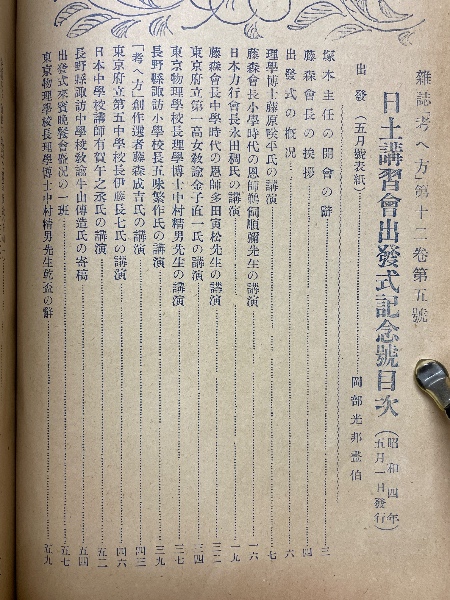 雜誌「考へ方」第十二卷第五號
日土講習會出發式記念號目次(昭和四年五月一日發行)
出發(五月號表紙)……岡部光邦畫伯
塚本主任の開會の辭……三
藤森會長の挨拶……四
出發式の概况……六
理學博士藤原咲平氏の講演……七
藤森會長小學時代の恩師鶴飼順彌先生の講演……一六
日本力行會長永田稠氏の講演……一九
藤森會長中學時代の恩師多田寅松先生の講演……三二
東京府立第一高女教諭金子直一氏の講演……三四
東京物理學校長理學博士中村精男先生の講演……三七
長野縣諏訪小學校長五味繁作氏の講演……三九
「考へ方」創作選者藤森成吉氏の講演……四三
東京府立第五中學校長伊藤長七氏の講演……四六
日本中學校講師有賀午之丞氏の講演……五二
長野縣諏訪中學校教諭牛山傳造氏の寄稿……五四
出發式來賓晩餐會概况の一班……五七
東京物理學校長理學博士中村精男先生乾盃の辭……五九